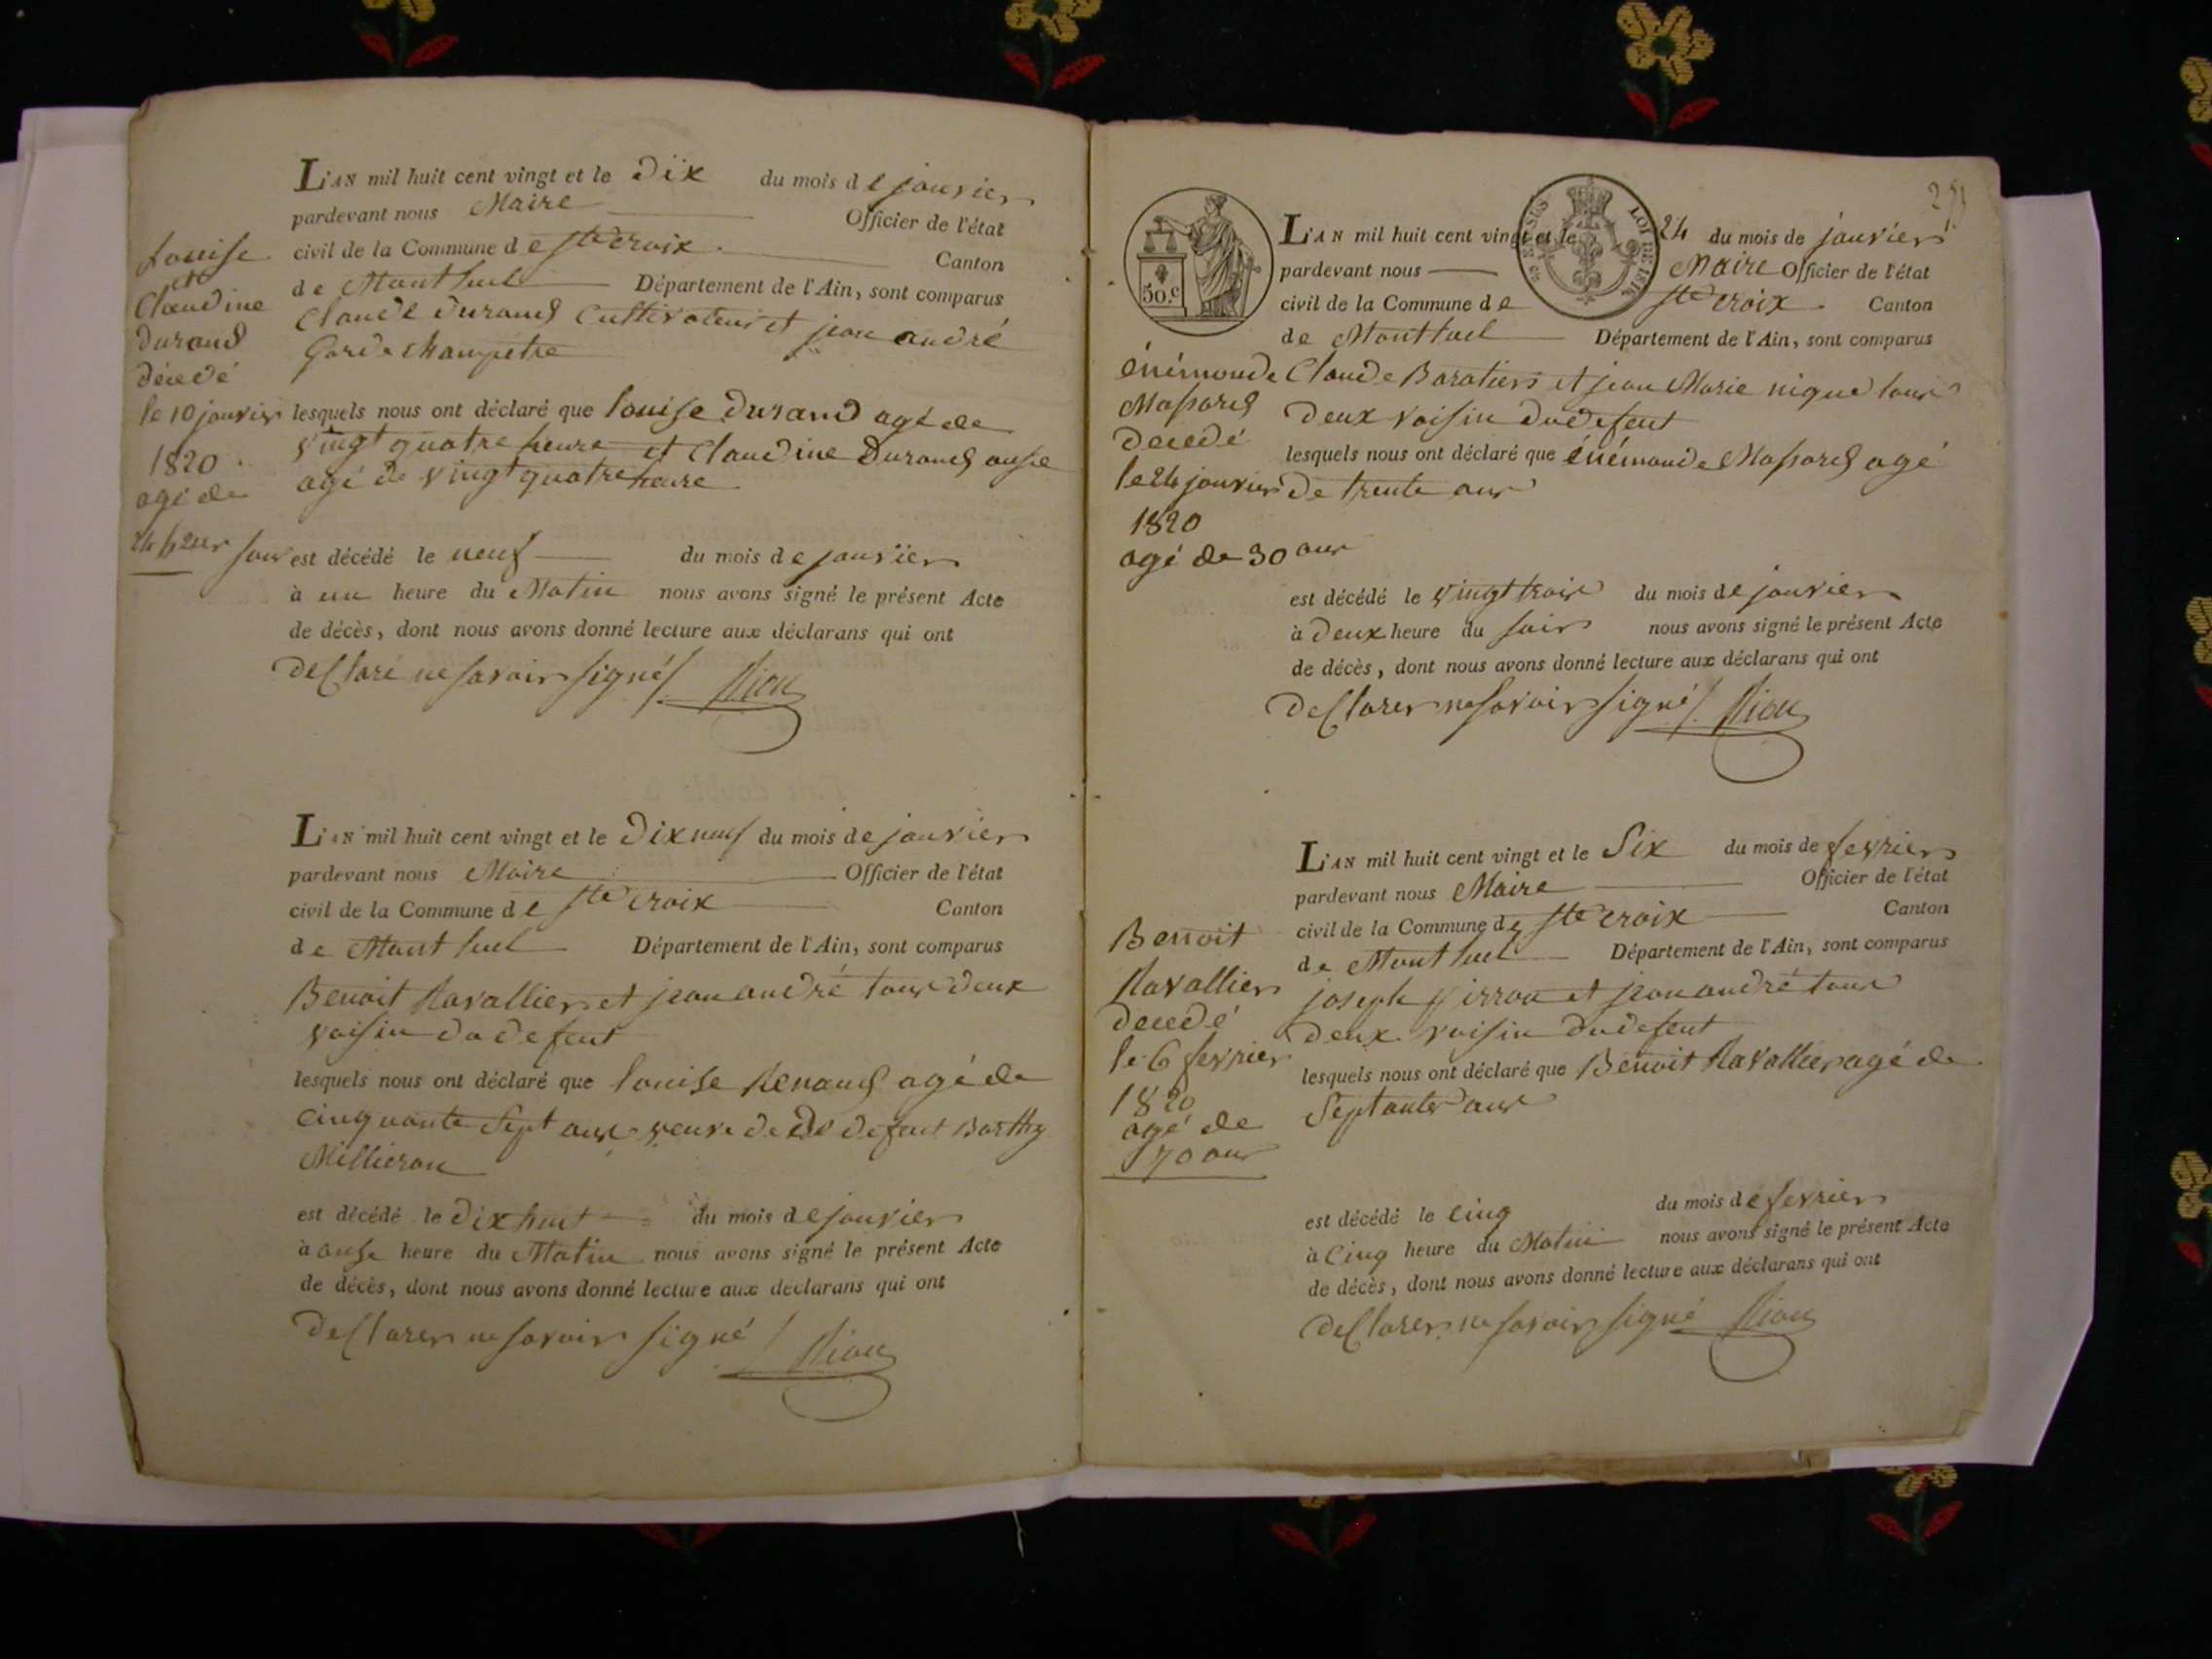 L'AN mil huit cent vingt et le Dix du mois de janvier
pardevant nous Maire Officier de l'état
civil de la Commune de Ste croix. Canton
de Montluel Département de l'Ain, sont comparus
Claude Durand Cultivateur et jean andré
Garde champetre
lesquels nous ont déclaré que louise Durand agé de
vingt quatre heure et Claudine Durand ausse
agé de vingt quatre heure
est décédé le neuf du mois de janvier
à un heure du Matin nous avons signé le présent Acte
de décès, dont nous avons donné lecture aux déclarans qui ont
declaré ne savoir signé
louise
et
Claudine
durand
décedé
le 10 janvier
1820
agé de
L'AN mil huit cent vingt et le Dix neuf du mois de janvier
pardevant nous Maire Officier de l'état
civil de la Commune de Ste croix Canton
de Montluel Département de l'Ain, sont comparus
Benoit Ravallier et jean andré tous deux
voisin du defent
lesquels nous ont déclaré que louise Renaud agé de
Cinquante Sept ans veuve de defent Barthy
Millieron
est décédé le Dix huit du mois de janvier
à onse heure du Matin nous avons signé le présent Acte
de décès, dont nous avons donné lecture aux déclarans qui ont
declarer ne savoir signé
50.c
LOI DE 1816
L'AN mil huit cent vingt et le 24 du mois de janvier
pardevant nous Maire Officier de l'état
civil de la Commune de Ste croix. Canton
de Montluel Département de l'Ain, sont comparus
Claude Baratier et jean Marie nique tous
deux voisin du defent
lesquels nous ont déclaré que énémonde Massard agé
de trente ans
est décédé le vingt trois du mois de janvier
à Deux heure du soir nous avons signé le présent Acte
de décès, dont nous avons donné lecture aux déclarans qui ont
declarer ne savoir signé
énémonde
Massard
decedé
le 24 janvier
1820
agé de 30 ans
L'AN mil huit cent vingt et le Six du mois de fevrier
pardevant nous Maire Officier de l'état
civil de la Commune de Ste croix Canton
de Montluel Département de l'Ain, sont comparus
joseph et jean andré tous
deux voisin du defent
lesquels nous ont déclaré que Benoit Ravallier agé de
Septante ans
est décédé le cinq du mois de fevrier
à Cinq heure du Matin nous avons signé le présent Acte
de décès, dont nous avons donné lecture aux déclarans qui ont
declarer ne savoir signé
Benoit
Ravallier
decedé
le 6 fevrier
1820
agé de
70 ans